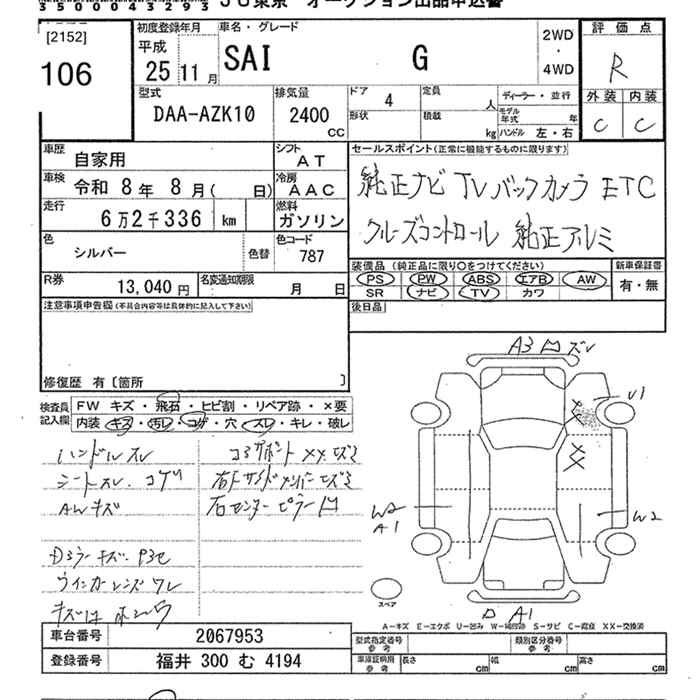 35000043293 JU東京 オークション出品申込書
[2152]
106
初度登録年月
平成
25 11月
車名・グレード
SAI G
2WD
・
4WD
評価点
R
外装 内装
C C
型式
DAA-AZK10
排気量
2400
CC
ドア
4
形状
定員
人
積載
kg
ディーラー・並行
モデル年式 年
ハンドル 左・右
車歴
自家用
シフト
AT
車検
令和 8年 8月( 日)
冷房
AAC
走行
6万2千336 km
燃料
ガソリン
色
シルバー
色替
色コード
787
R券
13,040円
名変通知期限
月 日
セールスポイント(正常に機能するものに限ります)
純正ナビ TV バックカメラ ETC
クルーズコントロール 純正アルミ
装備品 (純正品に限り○をつけてください)
PS PW ABS エアB AW
SR ナビ TV カワ
新車保証書
有・無
後日品
注意事項申告欄(不具合内容等は具体的に記入して下さい)
修復歴 有〔箇所 〕
検査員記入欄
FW キズ・飛石・ヒビ割・リペア跡・×要
内装・キズ・汚レ・コゲ・穴・スレ・キレ・破レ
ハンドルスレ
シートスレ. コゲ
AWキズ
コアサポート XX キズミ
右センターピラー凹
Dミラーキズ
ウインカーレンズワレ
A3 凹 ズレ
U1
W2
A1
W2
A1
スペア
A-キズ E-エクボ U-凹み W-補修跡 S-サビ C-腐食 XX-交換済
車台番号 2067953
登録番号 福井 300 む 4194
型式指定番号
参考
類別区分番号
参考
車庫証明用
参考
長さ cm 幅 cm 高さ cm